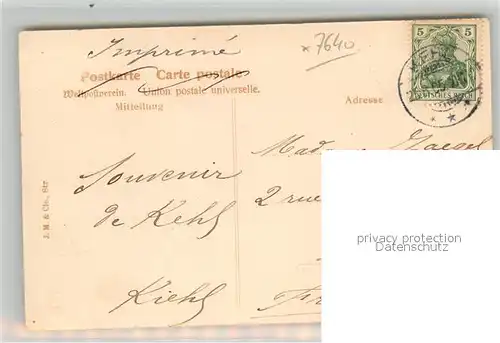 Imprimé
*7640
Postkarte Carte postale
Weltpostverein. Union postale universelle.
Mitteilung
Adresse
5 5
DEUTSCHES REICH
Souvenir
de Kehl
Kiehl
2 rue
Fr
J. M. & Cie., Str
privacy protection
Datenschutz